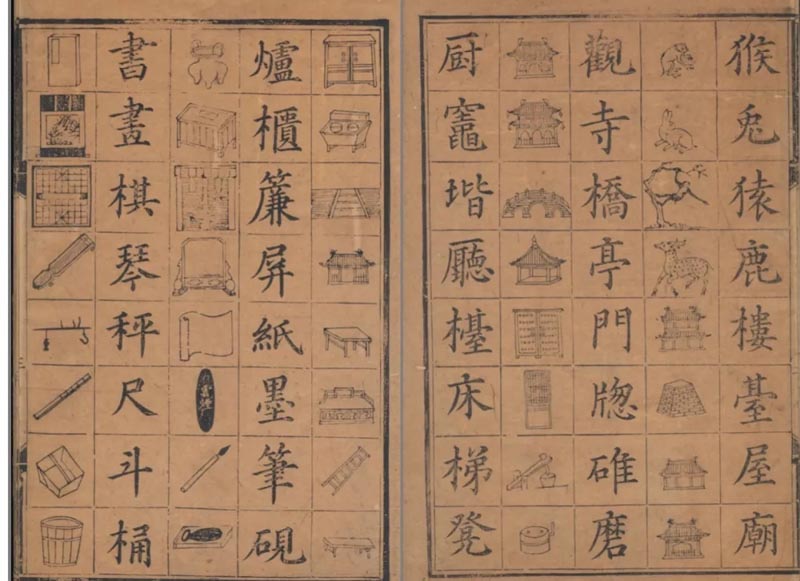 猴兔猿鹿樓臺屋廟
觀寺橋亭門牎碓磨
厨竈堦廳檯床梯凳
爐櫃簾屏紙墨筆硯
書畫棋琴秤尺斗桶